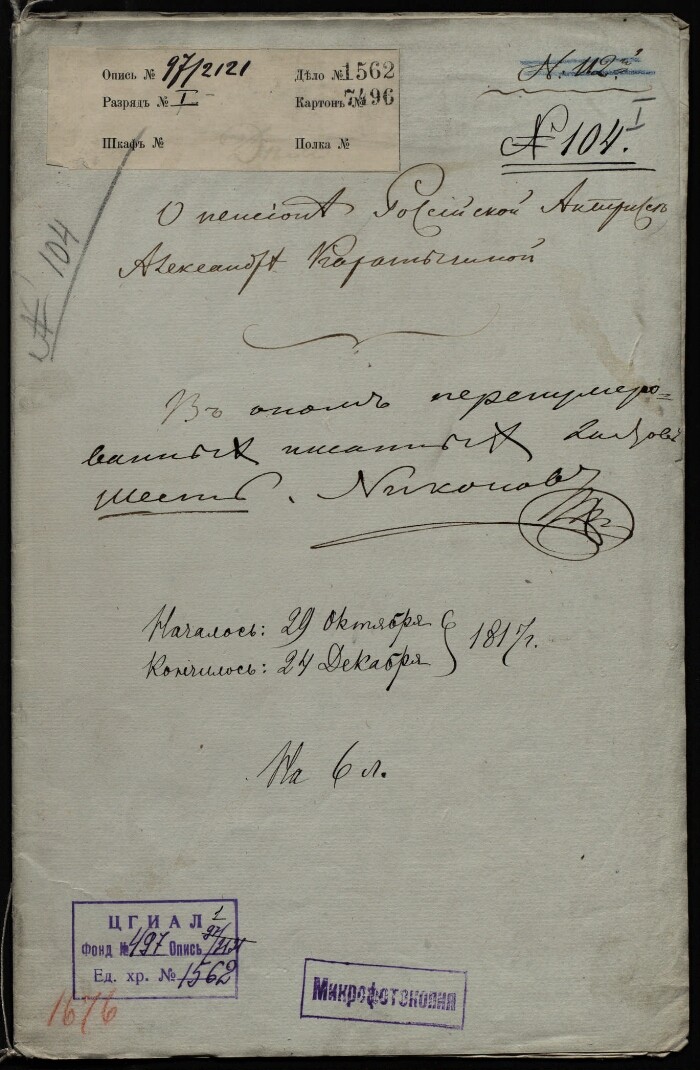 Опись № 97/2121
Дѣло № 1562
Разрядъ № I
Картонъ № 7496
Шкафъ №
Полка №
N. 112.
I
№ 104.
№ 104
О пенсіонѣ Россійской Актрисѣ
Александрѣ Каратыгиной
Въ ономъ перенумеро=
ванныхъ писанныхъ листовъ
шесть. Никоновъ
Началось: 29 Октября
1817 г.
Кончилось: 24 Декабря
На 6 л.
ЦГИАЛ
Фонд № 497 Опись 1 97/2121
Ед. хр. № 1562
Микрофотокопия
1676